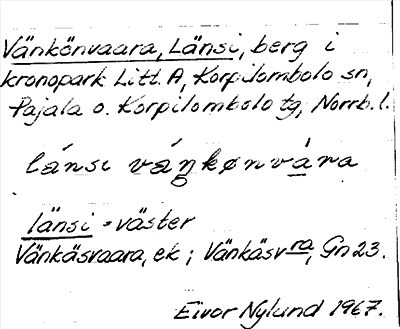 Vänkönvaara, Länsi, berg i
kronopark Litt. A, Korpilombolo sn,
Pajala o. Korpilombolo tg, Norrb. l.
länsi väŋkønvàra
länsi = väster
Vänkäsvaara, ek ; Vänkäsvra, Gn 23.
Eivor Nylund 1967.